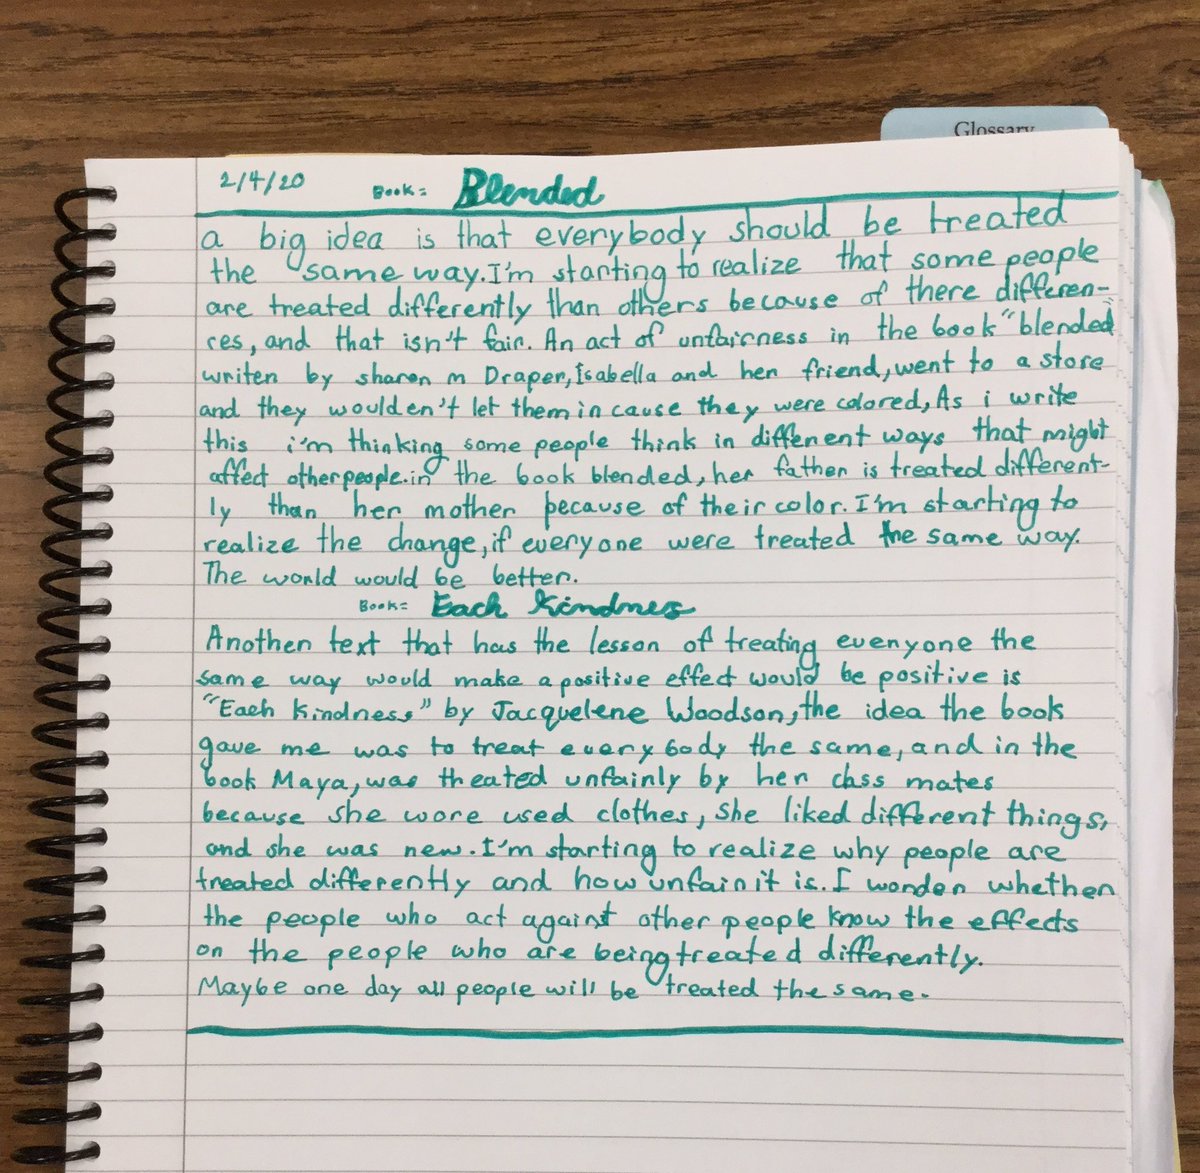 Glossary
2/4/20 Book= Blended
a big idea is that everybody should be treated
the same way. I'm starting to realize that some people
are treated differently than others because of there differen-
ces, and that isn't fair. An act of unfairness in the book "blended"
writen by sharon m Draper, Isabella and her friend, went to a store
and they woulden't let them in cause they were colored, As i write
this i'm thinking some people think in different ways that might
affect other people. in the book blended, her father is treated different-
ly than her mother because of their color. I'm starting to
realize the change, if everyone were treated the same way.
The world would be better.
Book= Each Kindness
Another text that has the lesson of treating everyone the
same way would make a positive effect would be positive is
"Each Kindness" by Jacquelene Woodson, the idea the book
gave me was to treat everybody the same, and in the
book Maya, was theated unfairly by her class mates
because she wore used clothes, She liked different things,
and she was new. I'm starting to realize why people are
treated differently and how unfair it is. I wonder whether
the people who act against other people know the effects
on the people who are being treated differently.
Maybe one day all people will be treated the same.